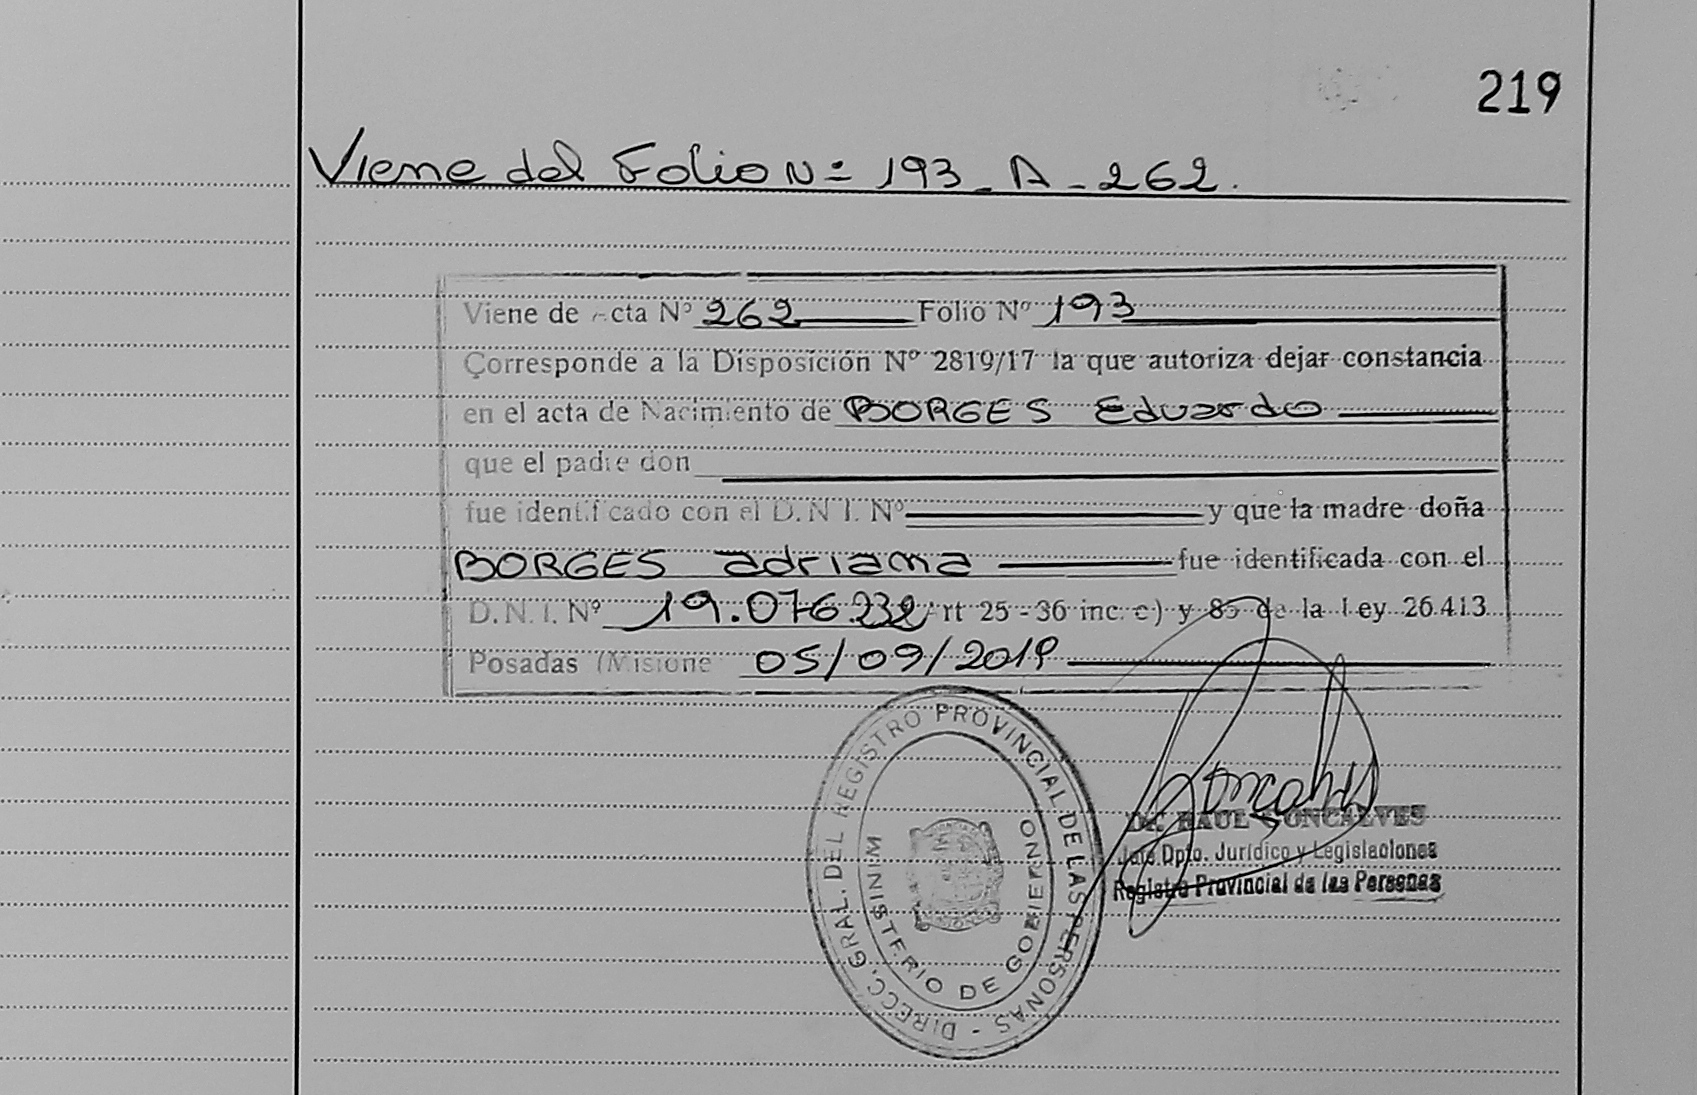 219
Viene del Folio Nº 193 - A - 262.
Viene de Acta Nº 262 Folio Nº 193
Corresponde a la Disposición Nº 2819/17 la que autoriza dejar constancia
en el acta de Nacimiento de BORGES Eduardo
que el padre don
fue identificado con el D.N.I. Nº y que la madre doña
BORGES adriana fue identificada con el
D.N.I. Nº 19.076.232 Art 25 - 36 inc. c) y 85 de la Ley 26.413
Posadas (Misione 05/09/2019
DIRECC. GRAL. DEL REGISTRO PROVINCIAL DE LAS PERSONAS -
MINISTERIO DE GOBIERNO
Goncalves
Dr. RAUL GONCALVES
Jefe Dpto. Jurídico y Legislaciones
Registro Provincial de las Personas